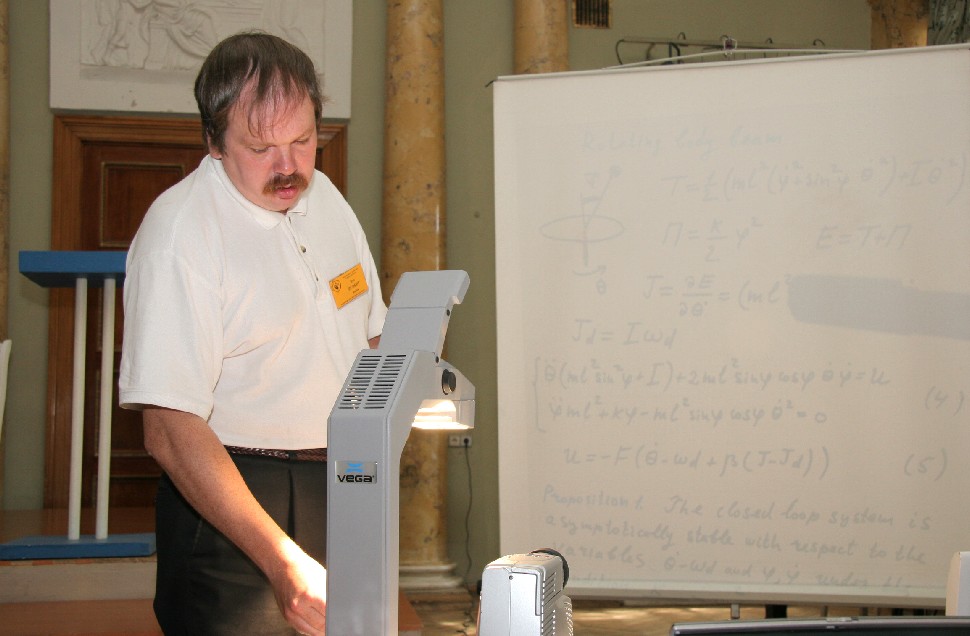 Rotating
T=½(ml²(ψ̇²+sin²ψ θ̇²)+Iθ̇²)
Π=k/2 ψ² E=T+Π
θ
J=∂E/∂θ̇=(ml²
J_d=Iω_d
θ̈(ml²sin²ψ+I)+2ml²sinψ cosψ θ̇ψ̇=u
ψ̈ml²+kψ-ml²sinψ cosψ θ̇²=0 (4)
u=-F(θ̇-ω_d+β(J-J_d)) (5)
Proposition 1. The closed loop system is
asymptotically stable with respect to the
variables θ̇-ω_d and ψ,ψ̇ under
VEGA